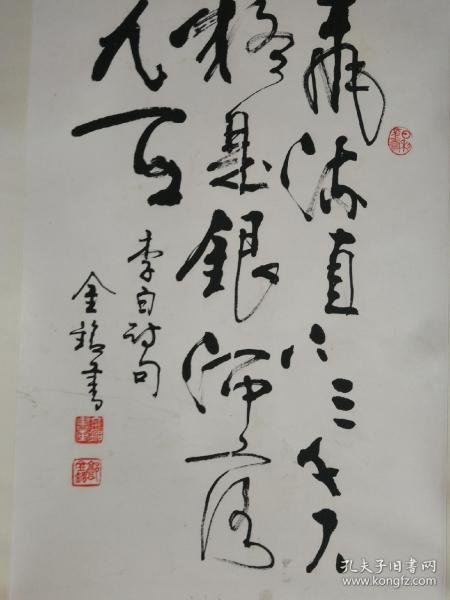 飛流直下三千尺
疑是銀河落
九天
李白詩句
金銘書
孔夫子旧书网
www.kongfz.com